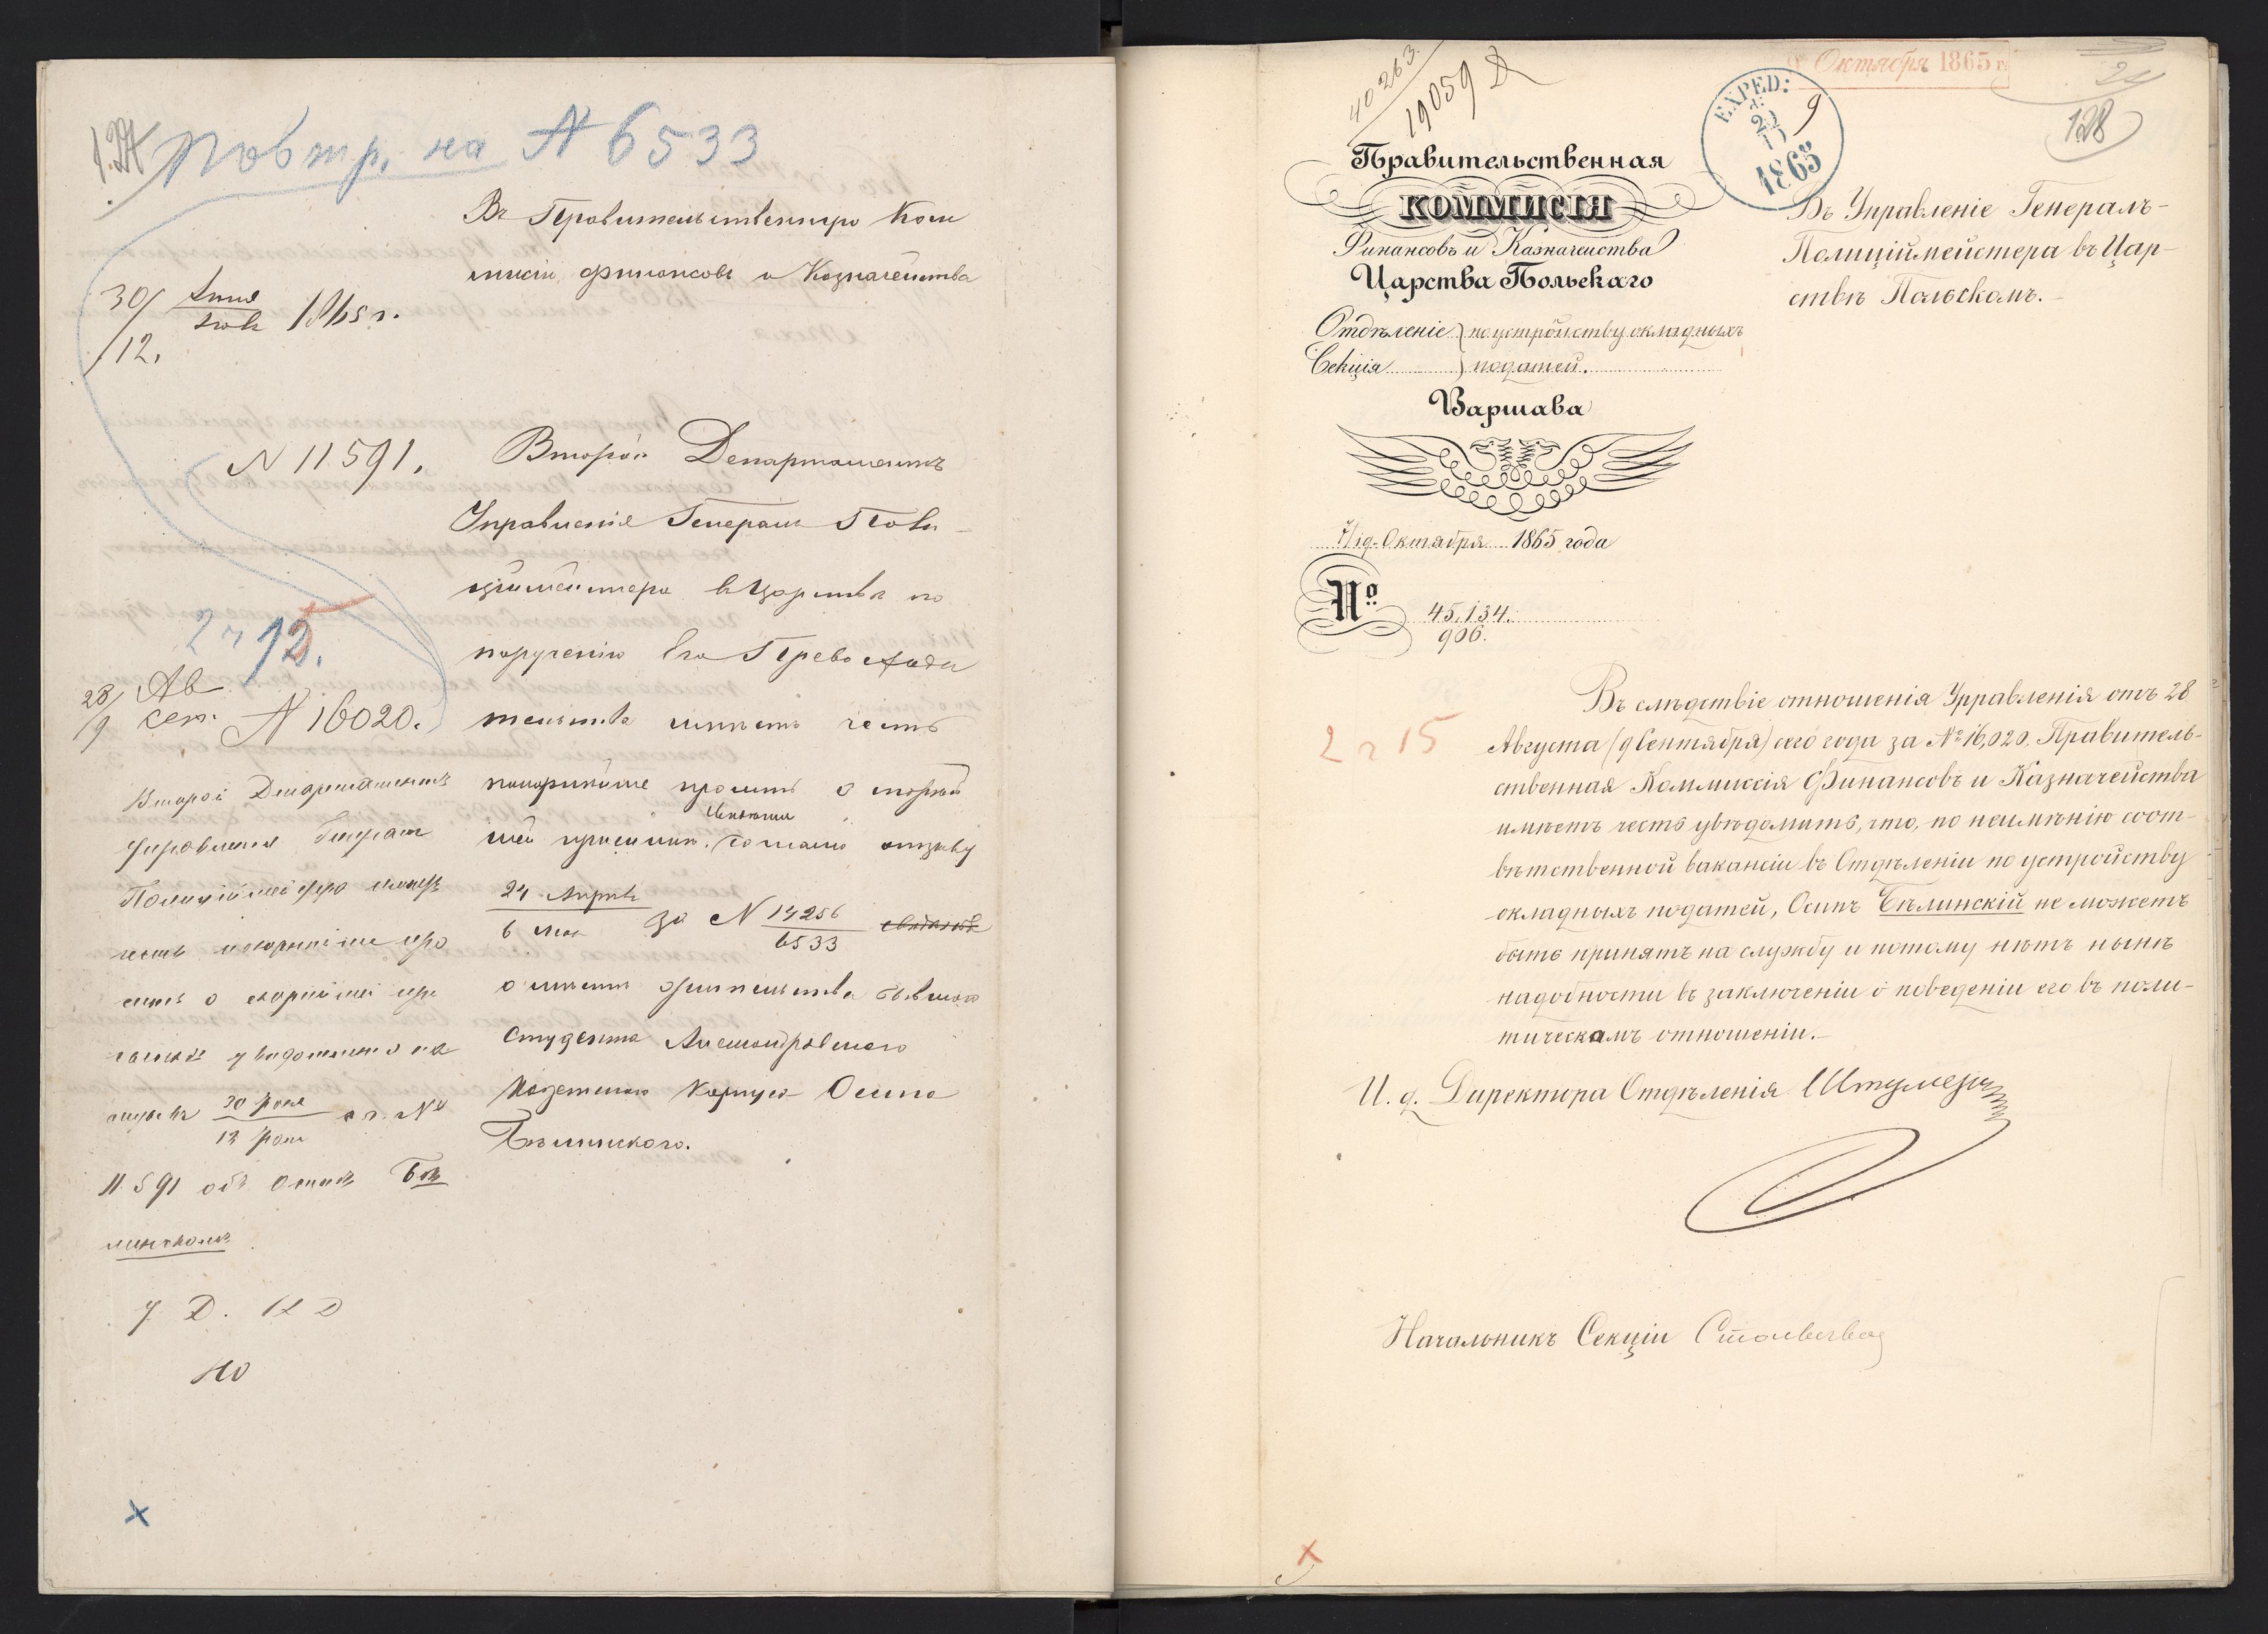 Повтр. на № 6533
Въ Правительственную Ком
мисію финансовъ и Казначейства
30/12. 1865 г.
N 11591.
Второй Департаментъ
Управленія Генералъ Поли-
ціймейстера въ Царствѣ по
порученію Его Превосходи
тельства имѣетъ честь
покорнѣйше просить о скорѣй
шей присылкѣ, согласно отзыву
24 Апрѣля
6 мая за N 14256
6533
студента Александровскаго
Кадетскаго Корпуса Осипа
Бѣлинскаго.
2 г 15.
28/9 Ав
сен. N 16020.
Второй Департаментъ
Управленія Генералъ
Полиціймейстера имѣетъ
честь покорнѣйше про
сить о скорѣйшей
11591 объ Осипѣ Бѣ
линскомъ
40263
19059
Октября 1865 г.
EXPED:
1865
9
128
Правительственная
КОММИСІЯ
Финансовъ и Казначейства
Царства Польскаго
Отдѣленіе } по устройству окладныхъ
Секція } податей.
Варшава
7/19 Октября 1865 года
№ 45,134.
906.
Въ Управленіе Генералъ-
Полиціймейстера въ Цар-
ствѣ Польскомъ.
2 г 15
Въ слѣдствіе отношенія Управленія отъ 28
Августа (9 Сентября) сего года за № 16,020, Правитель-
ственная Коммиссія Финансовъ и Казначейства
имѣетъ честь увѣдомить, что, по неимѣнію соот-
вѣтственной вакансіи въ Отдѣленіи по устройству
окладныхъ податей, Осипъ Бѣлинскій не можетъ
быть принятъ на службу и потому нѣтъ нынѣ
надобности въ заключеніи о поведеніи его въ поли-
тическомъ отношеніи.-
И. д. Директора Отдѣленія
Начальникъ Секціи